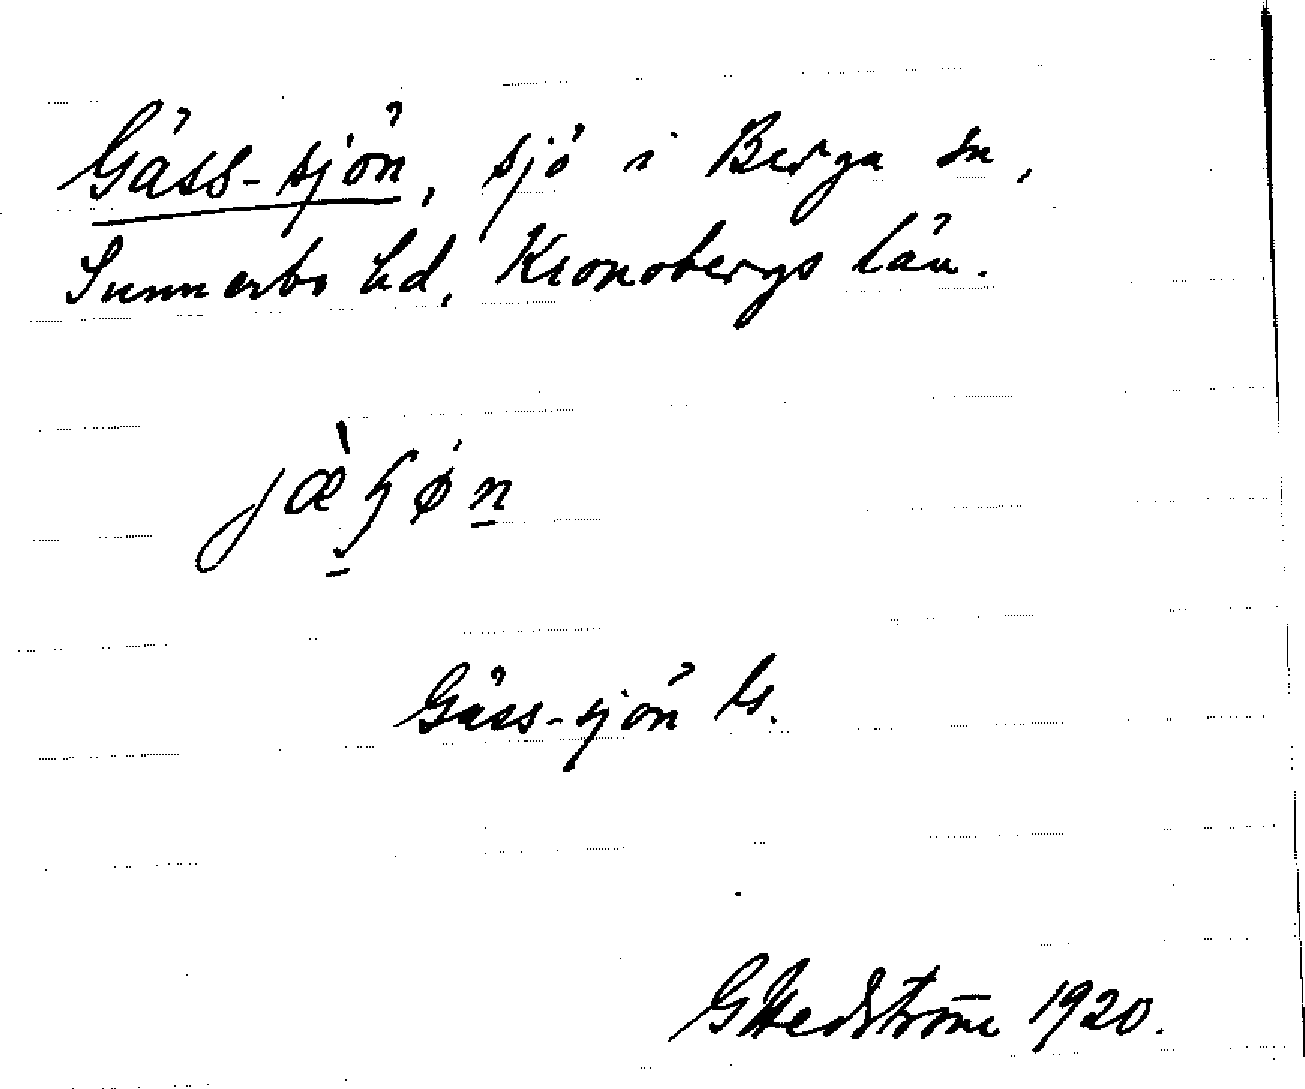 Gäss-sjön, sjö i Berga sn,
Sunnerbo hd, Kronobergs län.
Gäss-sjön
GHedström 1920.